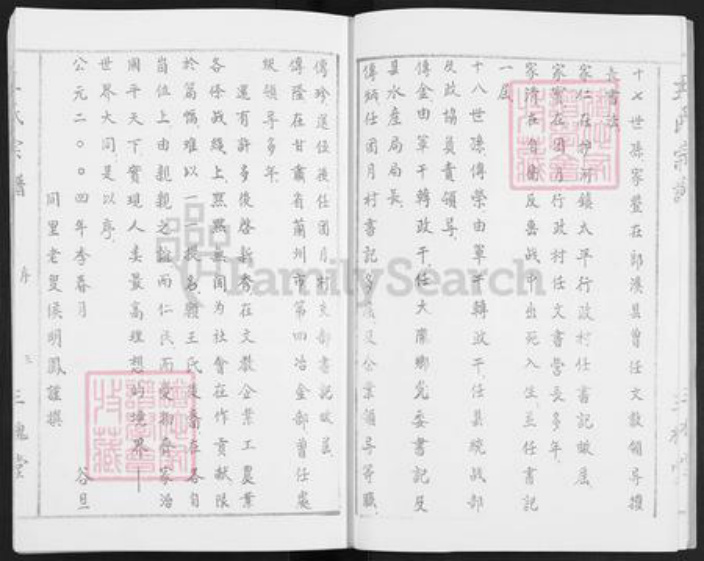 十七世孫家鰲在郎溪县曾任文教領导撥
長書法
家仁在抄河鎮太平行政村任書記數屆
家賓在团月行政村任文書營長多年
家清在自衛反鲁战中出死入生並任書記
一屆
十八世孫傳榮由軍干轉政干任县統战部
及政協負責領导
傳金由軍干轉政干任大廣鄉党委書記及
县水産局局長
傳炳任团月村書記多屆及企業領导等職
傳珍退位後任团月村支部書記數屆
傳陞在甘肅省蘭州市第四冶金部曾任處
級領导多年
還有許多後啓新秀在文教企業工農業
各條战綫上默默無闻为社會在作貢献限
於篇幅难以一一提名願王氏後裔在各自
崗位上由親親之誼而仁民而愛物齊家治
國平天下實現人类最高理想的境界——
世界大同是以序
公元二〇〇四年季春月 谷旦
同里老叟侯明鳳謹撰
王氏宗譜
序
三
三槐堂
FamilySearch